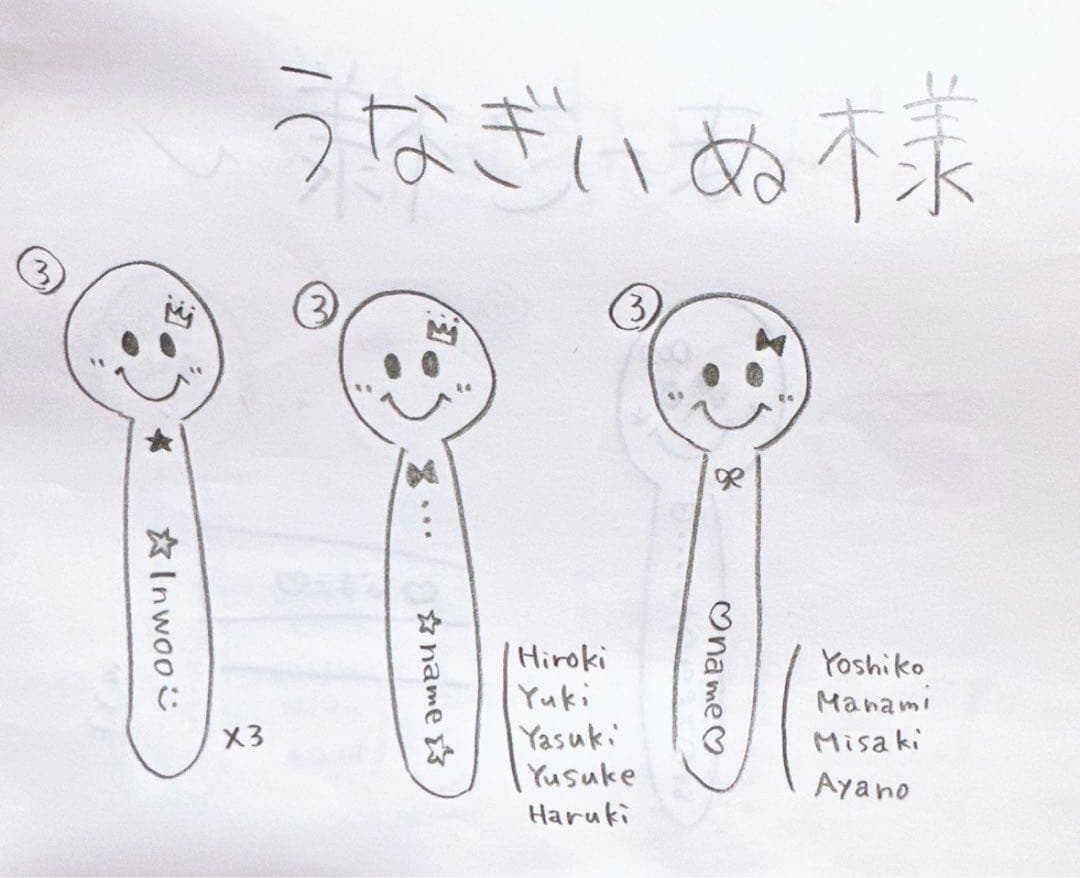 うなぎいぬ様
③
☆Inwoo
x3
③
☆name☆
Hiroki
Yuki
Yasuki
Yusuke
Haruki
③
♡name♡
Yoshiko
Manami
Misaki
Ayano